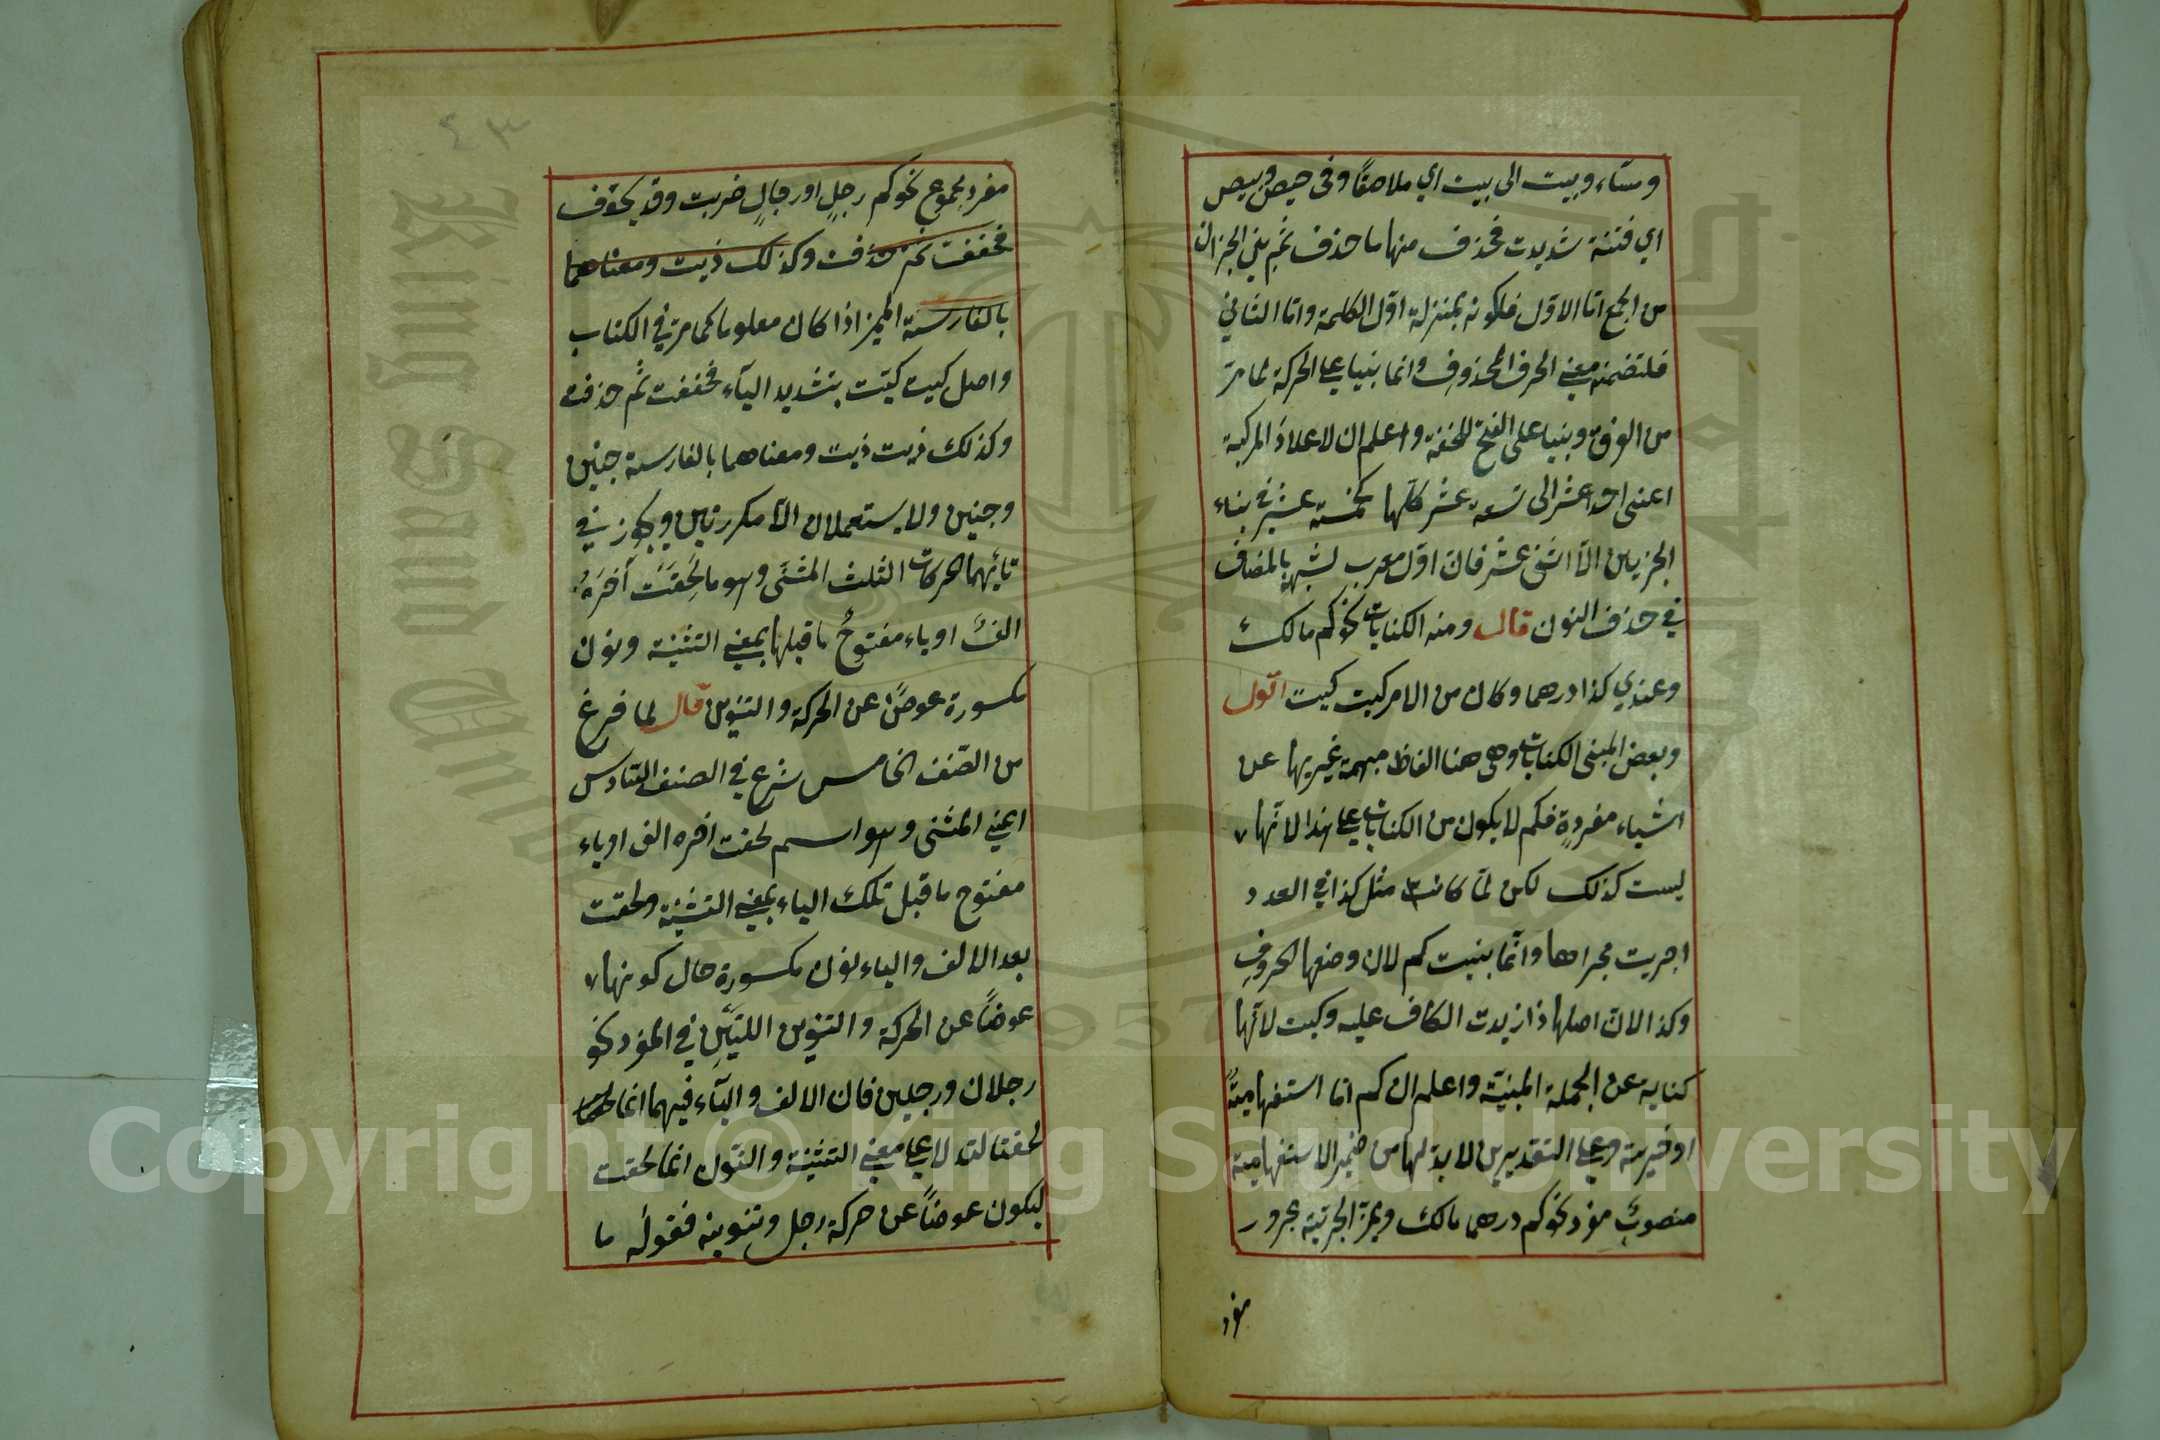 ومساء وبيت الى بيت اي ملاصقا وفى حيص وبيص
اي فتنة شديدت فحذف منها ما حذف ثم بنى الجزان
من الجمع اما الاول فلكونه بمنزلة اول الكلمة واما الثاني
فلتضمنه معنى الحرف المحذوف وانما بنيا على الحركة لما مر
من الوفق وبنيا على الفتح للخفة واعلم ان لاعلاذ المركبة
اعنى احد عشر الى تسعة عشر كلها كخمسة عشر في بناء
الجزيين الا اثنى عشر فان اول معرب لشبهه بالمضاف
في حذف النون قال ومنه الكنايات نحو كم مالك
وعندي كذا درهما وكان من الامر كيت كيت اقول
وبعض المبنى الكنايات وهى هنا الفاظ مبهمة غيريها عن
اشياء مفردة فكم لا يكون من الكنايات على هذا لانها
ليست كذلك لكن لما كانت مثل كذا في العدد
اجريت مجراها وانما بنيت كم لان وضعها الحروف
وكذا لان اصلها ذا زيدت الكاف عليه وكيت لانها
كناية عن الجملة المبنية واعلم ان كم اما استفهامية
او خبرية وعلى التقديرين لا بد لها من مميز الاستفهامية
منصوب مفرد نحو كم درهما مالك ومميز الخبرية مجرور
مفرد
٤٣
مفرد مجموع نحو كم رجل او رجال ضربت وقد يحذف
فخففت ثم حذفت وكذلك ذيت ومعناهما
بالفارسية المميز اذا كان معلوما كما مر في الكتاب
واصل كيت كيّت بتشديد الياء فخففت ثم حذفت
وكذلك ذيت ذيت ومعناهما بالفارسية جنين
وجنين ولا يستعملان الا مكررتين ويجوز في
تائهما الحركات الثلث المثنى وهو ما لحقت اخره
الف او ياء مفتوح ما قبلها بمعنى التثنية ونون
مكسورة عوضا عن الحركة والتنوين قال لما فرغ
من الصنف الخامس شرع في الصنف السادس
اعني المثنى وهو اسم لحقت اخره الف او ياء
مفتوح ما قبل تلك الياء بمعنى التثنية ولحقت
بعد الالف والياء نون مكسورة حال كونها
عوضا عن الحركة والتنوين اللتين في المفرد نحو
رجلان ورجلين فان الالف والياء فيهما انما
لحقتا لتدلا على معنى التثنية والنون انما لحقت
ليكون عوضا عن حركة رجل وتنوينه فقوله ما
King Saud University
1957
Copyright © King Saud University